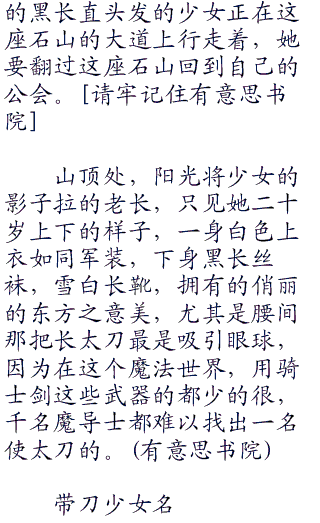 的黑长直头发的少女正在这
座石山的大道上行走着，她
要翻过这座石山回到自己的
公会。[请牢记住有意思书
院]
山顶处，阳光将少女的
影子拉的老长，只见她二十
岁上下的样子，一身白色上
衣如同军装，下身黑长丝
袜，雪白长靴，拥有的俏丽
的东方之意美，尤其是腰间
那把长太刀最是吸引眼球，
因为在这个魔法世界，用骑
士剑这些武器的都少的很，
千名魔导士都难以找出一名
使太刀的。(有意思书院)
带刀少女名